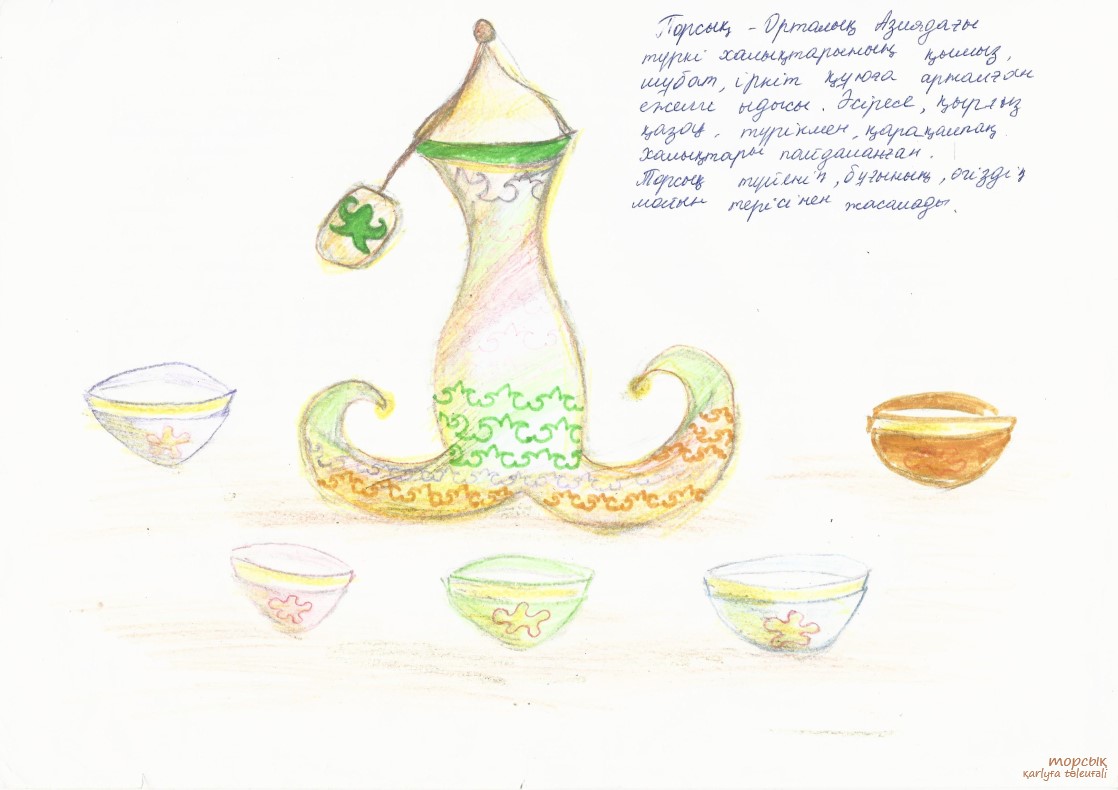 Торсық - Орталық Азиядағы
түркі халықтарының қымыз,
шұбат, іркіт құюға арналған
ежелгі ыдысы. Әсіресе, қырғыз
қазақ, түрікмен, қарақалпақ
халықтары пайдаланған.
Торсық түйенің, бұғының, өгіздің
мойын терісінен жасалады.
торсық
қarlyға töleuғali